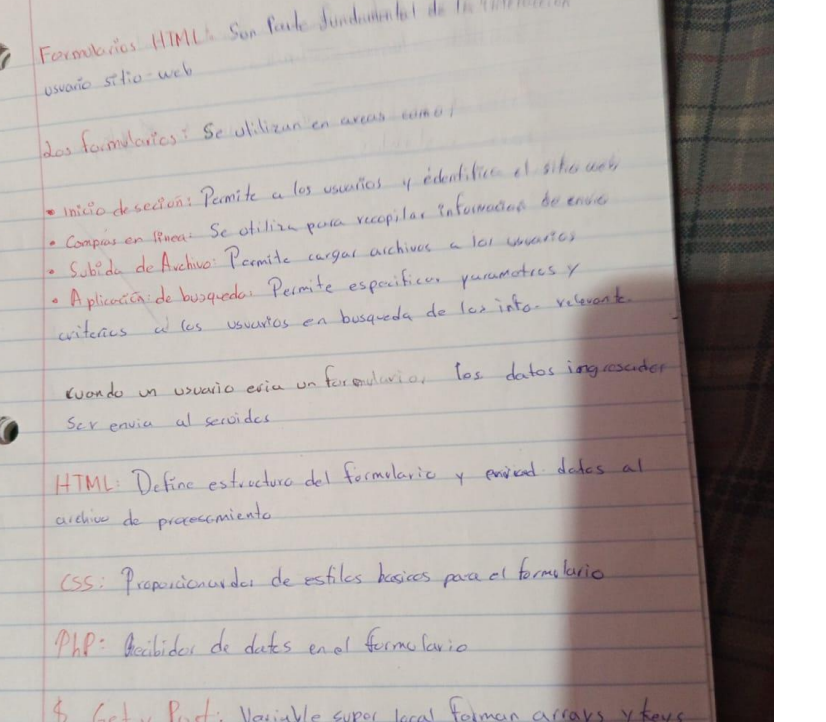 Formularios HTML: Son Parte fundamental de la interacción
usuario sitio-web
Los formularios: Se utilizan en areas como:
• Inicio de secion: Permite a los usuarios y identifica el sitio web
• Compras en linea: Se utiliza para recopilar informacion de envio
• Subida de Archivo: Permite cargar archivos a los usuarios
• Aplicación de busqueda: Permite especificar parametros y
criterios a los usuarios en busqueda de las info. relevante
cuando un usuario evia un formulario, los datos ingresados
Ser envia al servidor
HTML: Define estructura del formulario y datos al
archivo de procesamiento
CSS: de estilos basicos para el formulario
PhP: Recibidor de datos en el formulario
$ Get y Post: Variable super local forman arrays y keys